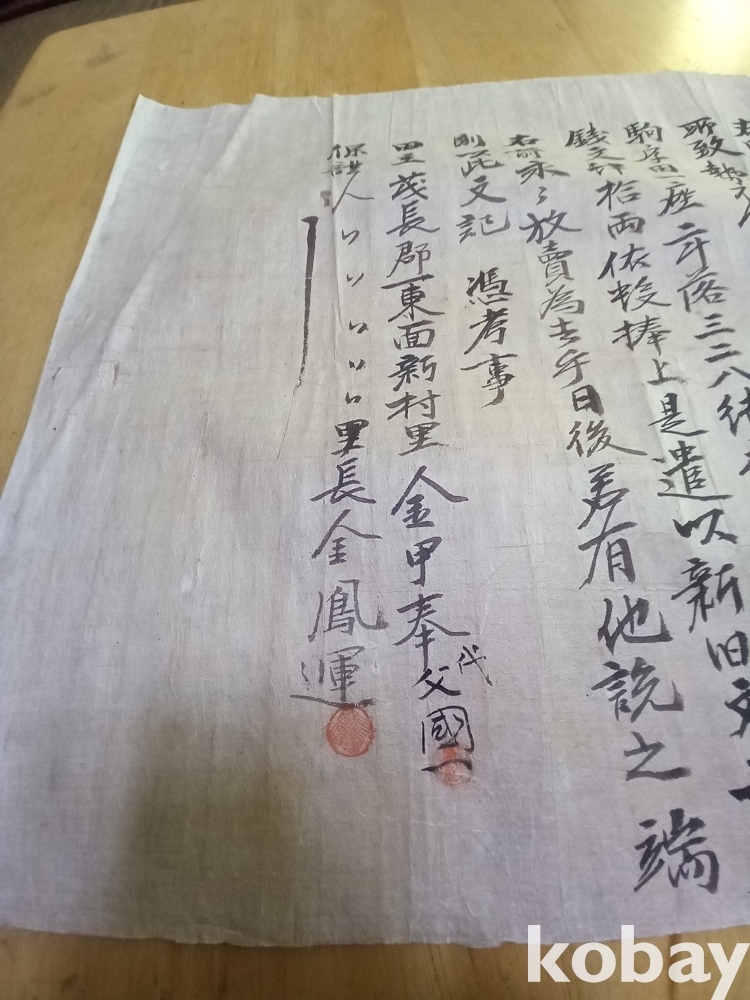 所致勢
駒字田一座二斗落三二八
錢文 拾兩依數捧上是遣以新旧文
右前永〻放賣為去乎日後若有他說之端
則此文記 憑考事
畓主 茂長郡一東面新村里 金甲奉 代父國一
保證人 〃 〃 〃 〃 〃 里長 金鳳運
kobay